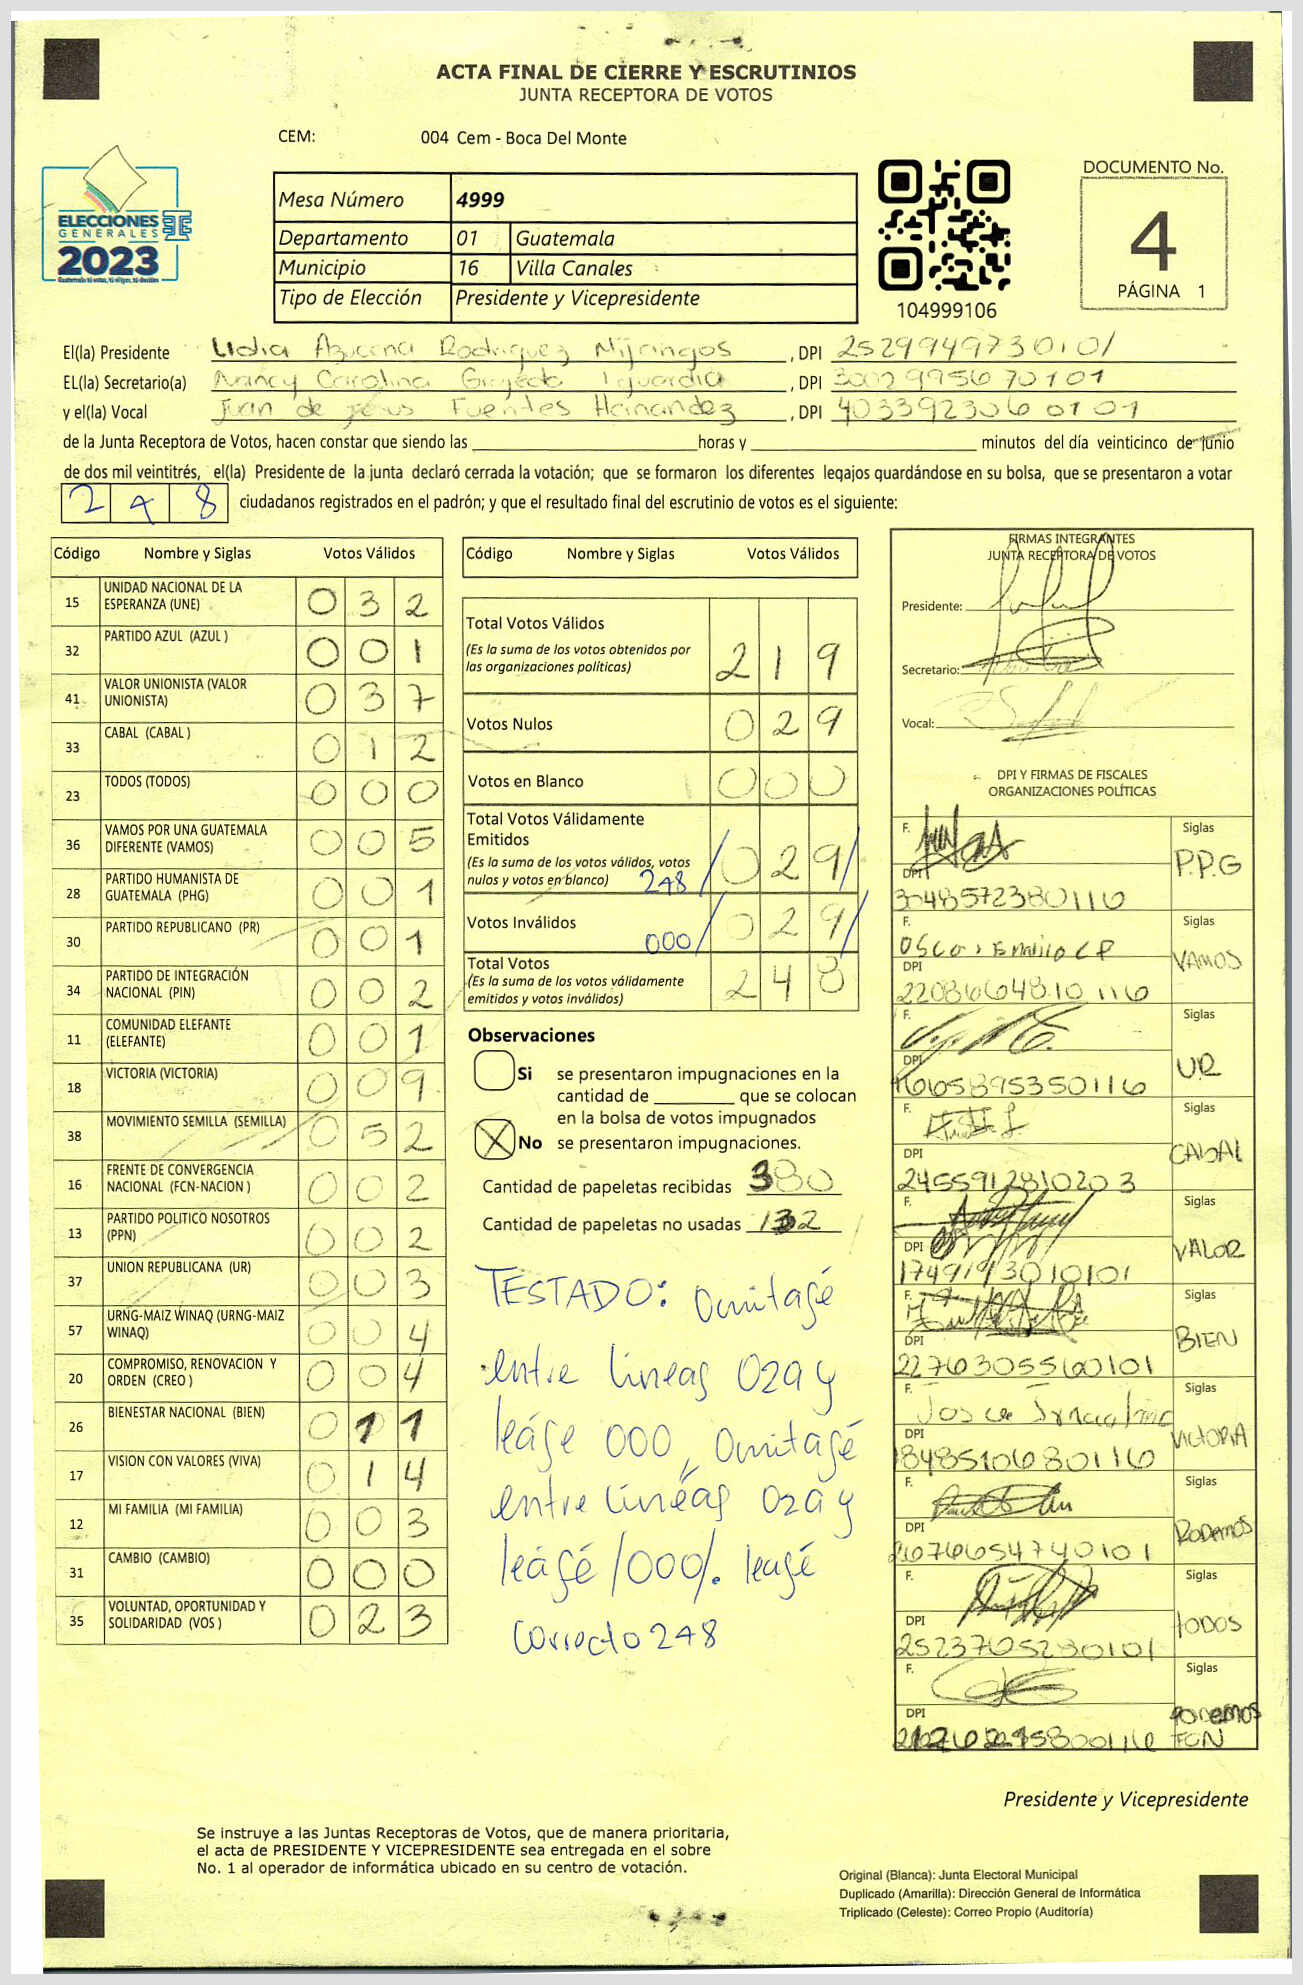 ACTA FINAL DE CIERRE Y ESCRUTINIOS
JUNTA RECEPTORA DE VOTOS
CEM: 004 Cem - Boca Del Monte
ELECCIONES
GENERALES
2023
Mesa Número 4999
Departamento 01 Guatemala
Municipio 16 Villa Canales
Tipo de Elección Presidente y Vicepresidente
104999106
DOCUMENTO No.
4
PÁGINA 1
El(la) Presidente Lidia Azucena Rodriguez Mijangos, DPI 2529949730101
EL(la) Secretario(a) Nancy Carolina, DPI 3002995670101
y el(la) Vocal Juan de Jesus Fuentes Hernandez, DPI 4033923060101
de la Junta Receptora de Votos, hacen constar que siendo las horas y minutos del día veinticinco de junio
de dos mil veintitrés, el(la) Presidente de la junta declaró cerrada la votación; que se formaron los diferentes legajos guardándose en su bolsa, que se presentaron a votar
248 ciudadanos registrados en el padrón; y que el resultado final del escrutinio de votos es el siguiente:
Código Nombre y Siglas Votos Válidos
15 UNIDAD NACIONAL DE LA ESPERANZA (UNE) 032
32 PARTIDO AZUL (AZUL ) 001
41 VALOR UNIONISTA (VALOR UNIONISTA) 037
33 CABAL (CABAL ) 012
23 TODOS (TODOS) 000
36 VAMOS POR UNA GUATEMALA DIFERENTE (VAMOS) 005
28 PARTIDO HUMANISTA DE GUATEMALA (PHG) 001
30 PARTIDO REPUBLICANO (PR) 001
34 PARTIDO DE INTEGRACIÓN NACIONAL (PIN) 002
11 COMUNIDAD ELEFANTE (ELEFANTE) 001
18 VICTORIA (VICTORIA) 009
38 MOVIMIENTO SEMILLA (SEMILLA) 052
16 FRENTE DE CONVERGENCIA NACIONAL (FCN-NACION ) 002
13 PARTIDO POLITICO NOSOTROS (PPN) 002
37 UNION REPUBLICANA (UR) 003
57 URNG-MAIZ WINAQ (URNG-MAIZ WINAQ) 004
20 COMPROMISO, RENOVACION Y ORDEN (CREO ) 004
26 BIENESTAR NACIONAL (BIEN) 011
17 VISION CON VALORES (VIVA) 014
12 MI FAMILIA (MI FAMILIA) 003
31 CAMBIO (CAMBIO) 000
35 VOLUNTAD, OPORTUNIDAD Y SOLIDARIDAD (VOS ) 023
Código Nombre y Siglas Votos Válidos
Total Votos Válidos
(Es la suma de los votos obtenidos por
las organizaciones políticas) 219
Votos Nulos 029
Votos en Blanco 000
Total Votos Válidamente
Emitidos
(Es la suma de los votos válidos, votos
nulos y votos en blanco) 248 /029/
Votos Inválidos 000 /029/
Total Votos
(Es la suma de los votos válidamente
emitidos y votos inválidos) 248
Observaciones
Si se presentaron impugnaciones en la
cantidad de que se colocan
en la bolsa de votos impugnados
X No se presentaron impugnaciones.
Cantidad de papeletas recibidas 380
Cantidad de papeletas no usadas 132
TESTADO: Omitasé
entre lineas 029 y
leáse 000, Omitasé
entre lineas 029 y
leásé /000/. leasé
correcto 248
FIRMAS INTEGRANTES
JUNTA RECEPTORA DE VOTOS
Presidente:
Secretario:
Vocal:
DPI Y FIRMAS DE FISCALES
ORGANIZACIONES POLÍTICAS
F. Siglas
DPI P.P.G
3048572380116
F. Siglas
DPI VAMOS
2208664810116
F. Siglas
DPI UR
1665895350116
F. Siglas
DPI CABAL
2455912810203
F. Siglas
DPI VALOR
F. Siglas
DPI BIEN
2276305560101
F. Siglas
DPI VICTORIA
1848510680116
F. Siglas
DPI PODEMOS
2676654740101
F. Siglas
DPI TODOS
2523765280101
F. Siglas
DPI FCN
Presidente y Vicepresidente
Se instruye a las Juntas Receptoras de Votos, que de manera prioritaria,
el acta de PRESIDENTE Y VICEPRESIDENTE sea entregada en el sobre
No. 1 al operador de informática ubicado en su centro de votación.
Original (Blanca): Junta Electoral Municipal
Duplicado (Amarilla): Dirección General de Informática
Triplicado (Celeste): Correo Propio (Auditoría)